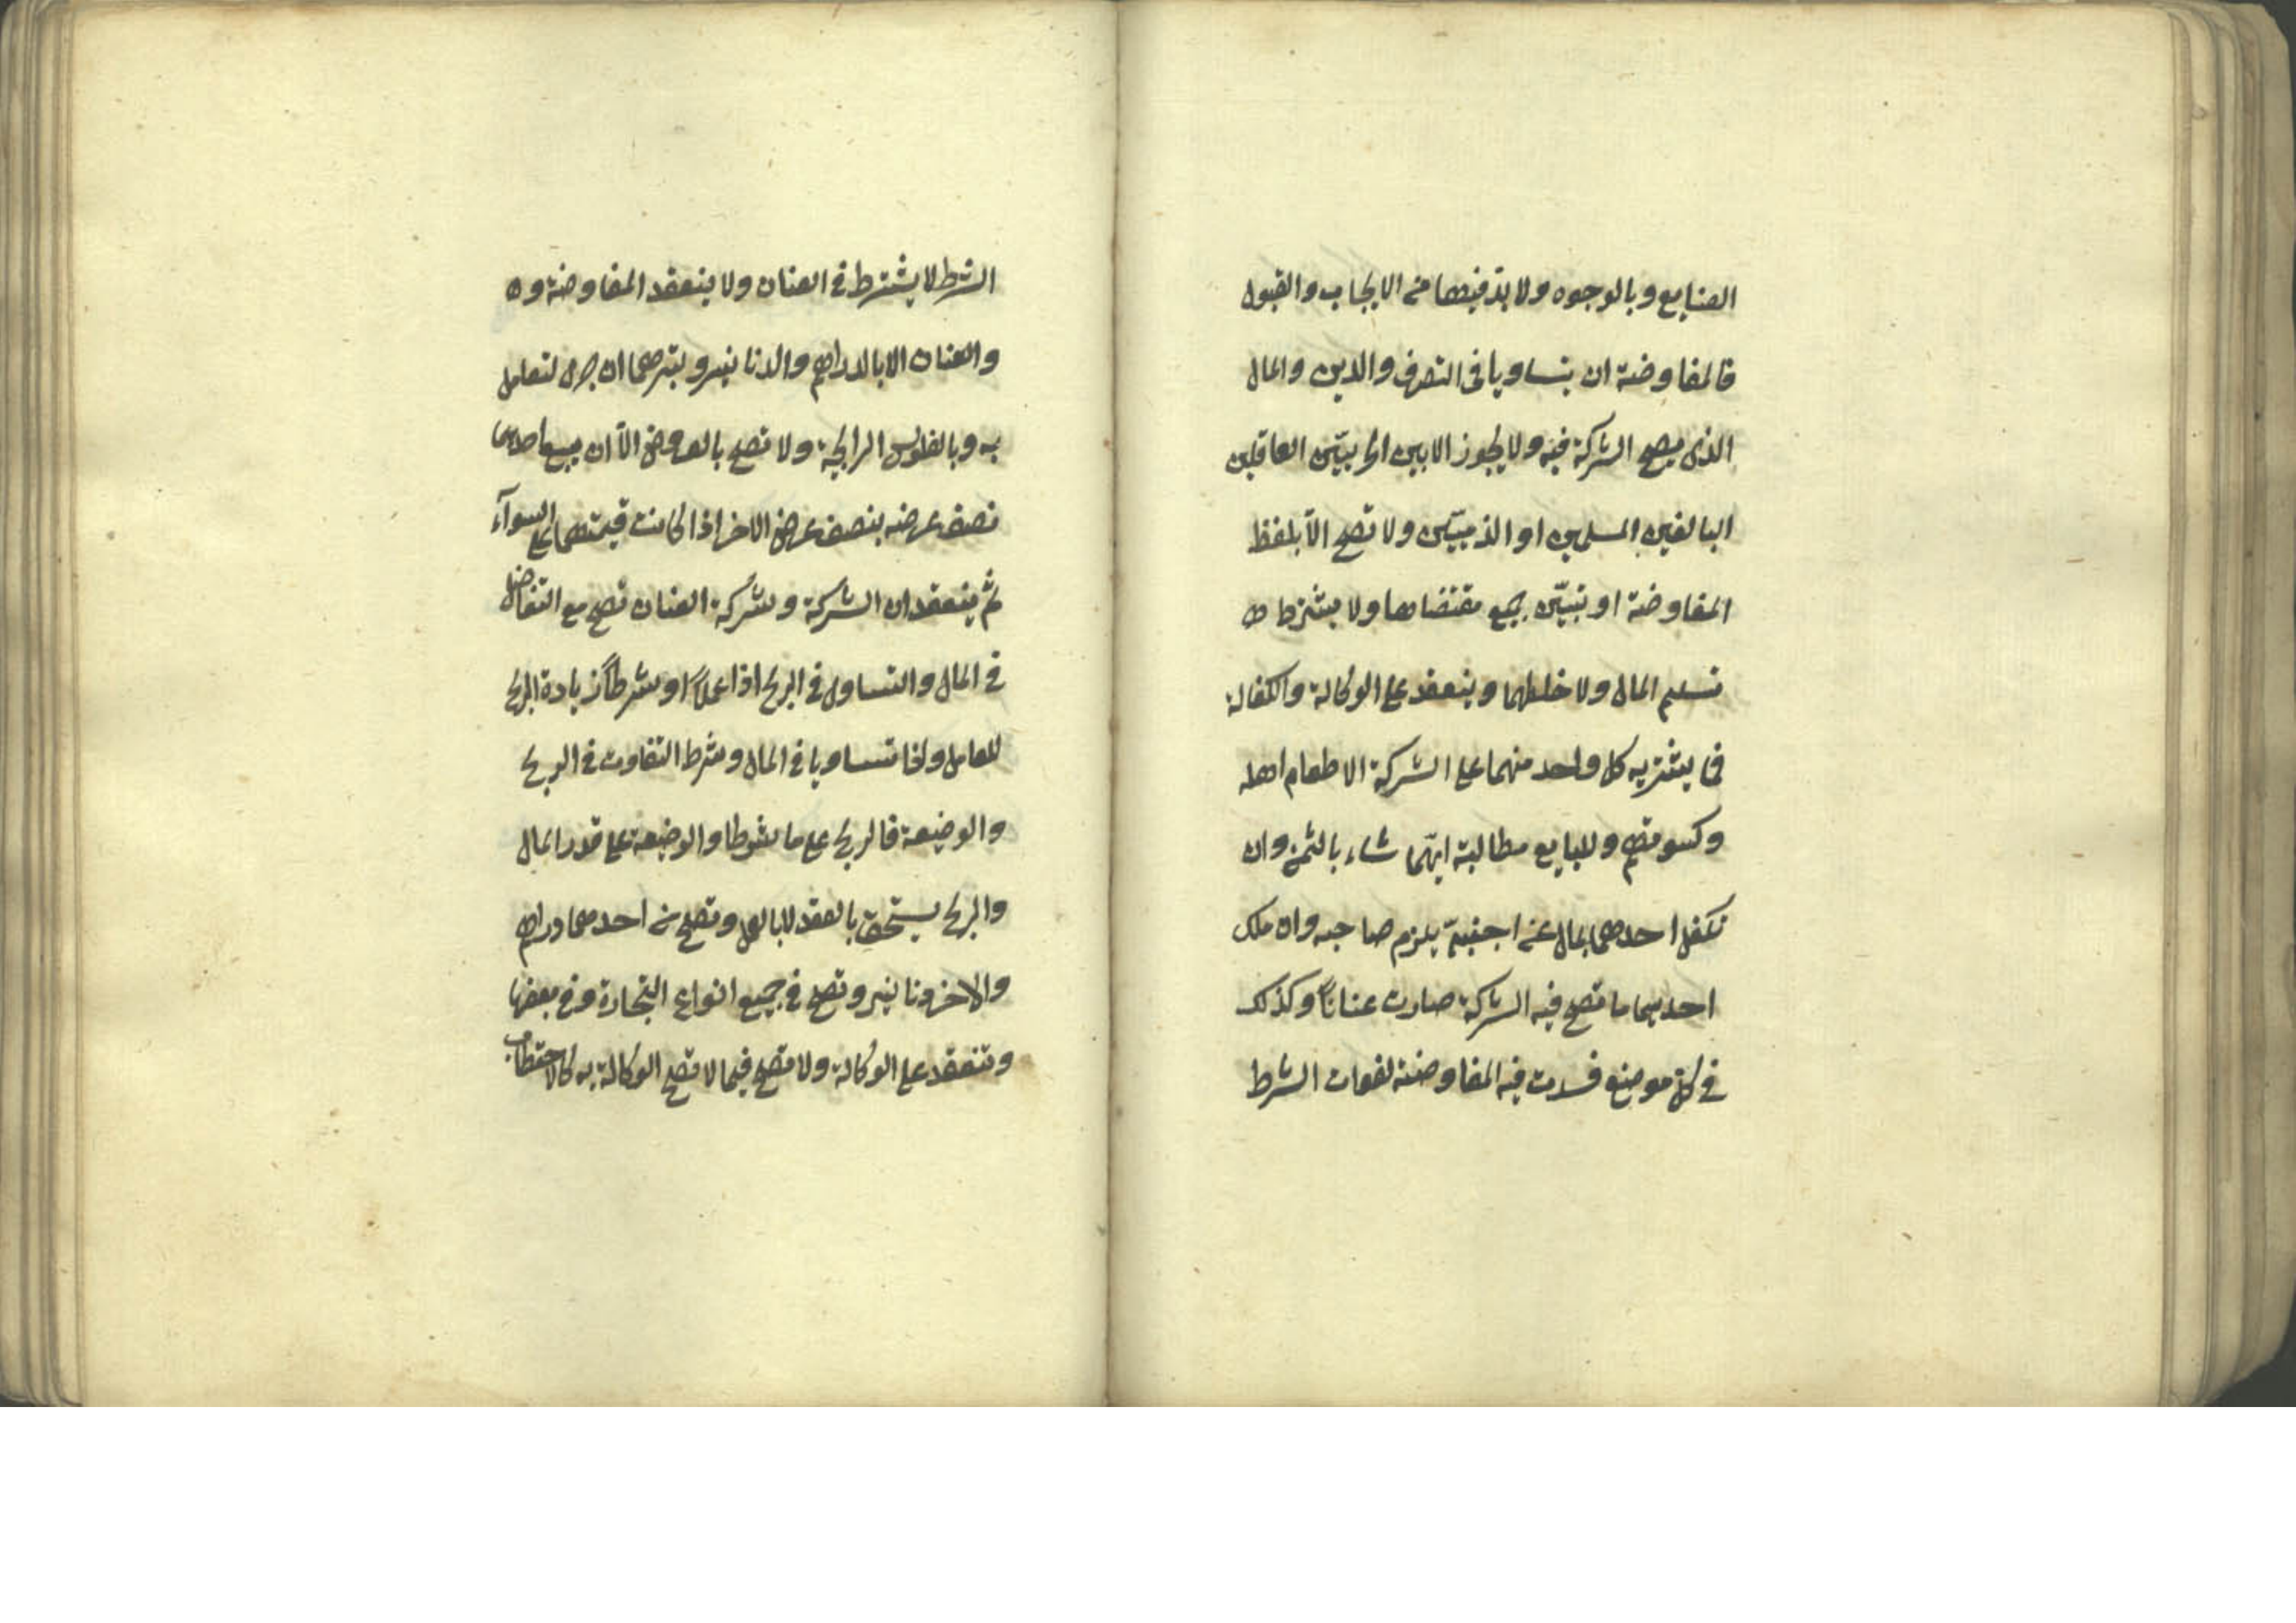 الصنايع وبالوجوه ولا بد فيها من الايجاب والقبول
فالمفاوضة ان يتساويا في التصرف والدين والمال
الذي يصح الشركة فيه ولا يجوز الا بين الحريين العاقلين
البالغين المسلمين او الذميين ولا تصح الا بلفظ
المفاوضة او تبيين جميع مقتضاها ولا يشترط
تسليم المال ولا خلطهما وينعقد على الوكالة والكفالة
فما يشتريه كل واحد منهما على الشركة الا طعام اهله
وكسوتهم وللبايع مطالبة ايهما شاء بالثمن وان
تكفل احدهما بمال عن اجنبي يلزم صاحبه وان ملك
احديهما ما تصح فيه الشركة صارت عنانا وكذلك
في كل موضع فسدت فيه المفاوضة لفوات الشرط
الشرط لا يشترط في العنان ولا ينعقد المفاوضة و
والعنان الا بالدراهم والدنانير وبتبرهما ان جرى لتعامل
به وبالفلوس الرايجة ولا تصح بالعروض الا ان يبيع احدهما
نصف عرضه بنصف عرض الاخر اذا كانت قيمتهما على السوآء
ثم ينعقدان الشركة وشركة العنان تصح مع التفاضل
في المال والتساوي في الربح اذا عملا او شرطا زيادة الربح
للعامل واذا تساويا في المال وشرط التفاوت في الربح
والوضيعة فالربح على ما شرطا والوضيعة على قدر المال
والربح يستحق بالعقد لا بالعمل وتصح من احدهما دراهم
والاخر دنانير وتصح في جميع انواع التجارة وفي بعضها
وتنعقد على الوكالة ولا تصح فيما لا تصح الوكالة به كالاحتطاب